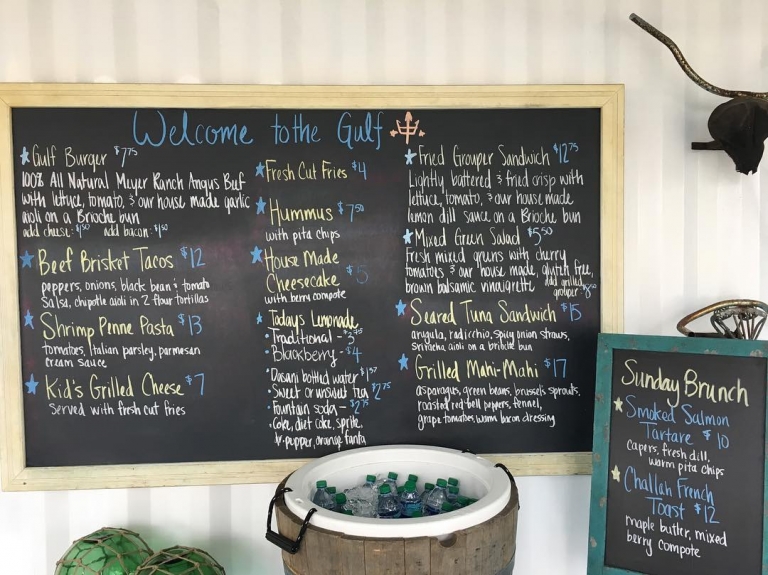 Welcome to the Gulf
Gulf Burger $7.75
100% All Natural Meyer Ranch Angus Beef
with lettuce, tomato, & our house made garlic
aioli on a Brioche bun
add cheese: $1.50 add bacon: $1.50
Beef Brisket Tacos $12
peppers, onions, black bean & tomato
salsa, chipotle aioli in 2 flour tortillas
Shrimp Penne Pasta $13
tomatoes, Italian parsley, parmesan
cream sauce
Kid's Grilled Cheese $7
Served with fresh cut fries
Fresh Cut Fries $4
Hummus $7.50
with pita chips
House Made
Cheesecake $5
with berry compote
Todays Lemonade
Traditional -
Blackberry - $4
Dasani bottled water
Sweet or unsweet tea $2.75
Fountain soda - $2.75
Coke, diet coke, sprite,
dr. pepper, orange fanta
Fried Grouper Sandwich $12.75
Lightly battered & fried crisp with
lettuce, tomato, & our house made
lemon dill sauce on a Brioche bun
Mixed Green Salad $5.50
Fresh mixed greens with cherry
tomatoes & our house made, gluten free,
brown balsamic vinaigrette add grilled
grouper
Seared Tuna Sandwich $15
arugula, radicchio, spicy onion straws,
Sriracha aioli on a brioche bun
Grilled Mahi-Mahi $17
asparagus, green beans, brussels sprouts,
roasted red bell peppers, fennel,
grape tomatoes, warm bacon dressing
Sunday Brunch
Smoked Salmon
Tartare $10
capers, fresh dill,
warm pita chips
Challah French
Toast $12
maple butter, mixed
berry compote